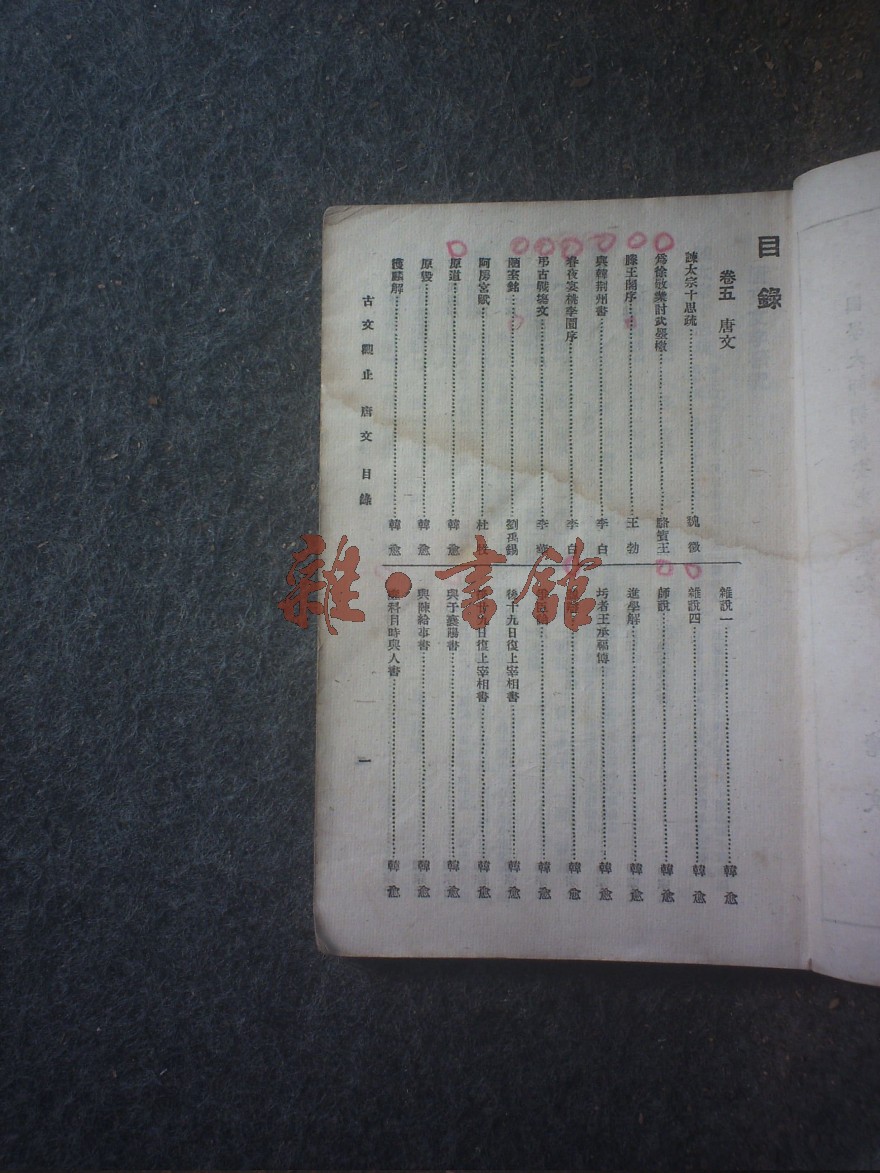 目錄
卷五 唐文
諫太宗十思疏……魏徵
爲徐敬業討武曌檄……駱賓王
滕王閣序……王勃
與韓荆州書……李白
春夜宴桃李園序……李白
弔古戰塲文……李華
陋室銘……劉禹錫
阿房宮賦……杜
原道……韓愈
原毀……韓愈
獲麟解……韓愈
雜說一……韓愈
雜說四……韓愈
師說……韓愈
進學解……韓愈
圬者王承福傳……韓愈
……韓愈
……韓愈
後十九日復上宰相書……韓愈
廿九日復上宰相書……韓愈
與于襄陽書……韓愈
與陳給事書……韓愈
科目時與人書……韓愈
古文觀止 唐文 目錄
一
雜·書館